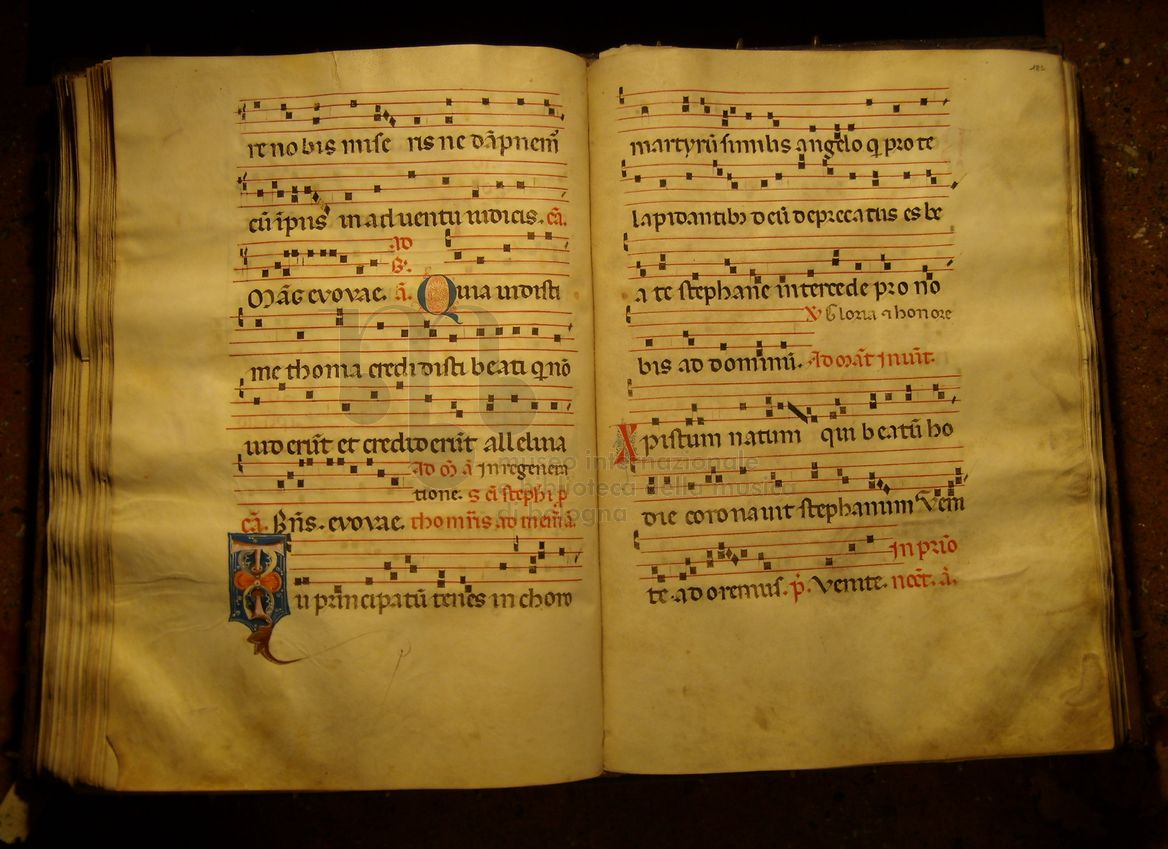 re nobis mise ris ne dāpnem̄
cū ip̄ius in adventu iudicis. cā.
ad
B̄.
Māg̃ evovae. ā. Quia vidisti
me thoma credidisti beati q nō
viderūt et crediderūt alleluia
ad m̄ ā In regenera
tione. s cī steph̄i p
cā. Bn̄s. evovae. thom̄is ad mem̄ā.
Tu principatū tenes in choro
182
martyrū similis angelo q pro te
lapidantibȝ deū deprecatus es be
ate stephane intercede pro no
℣ Gloria ⁊ honore
bis ad dominū. Ad māt Inuit.
Xpistum natum qui beatū ho
die coronavit stephanum Veni
In prio
te adoremus. p̄. Venite. noct̄. ā.
museo internazionale
biblioteca della musica
di bologna